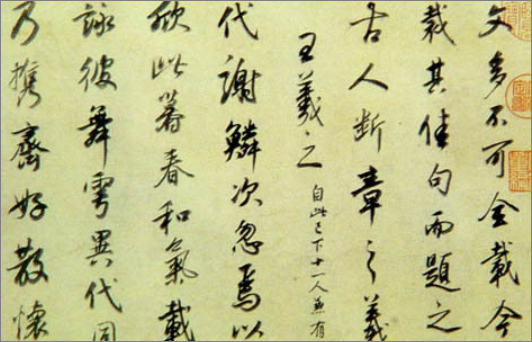 文多不可全載今
裁其佳句而題之
古人斷章之義
王羲之 自此已下十一人兼有
代謝鱗次忽焉以
欣此暮春和氣載
詠彼舞雩異代同
乃攜齊好散懷